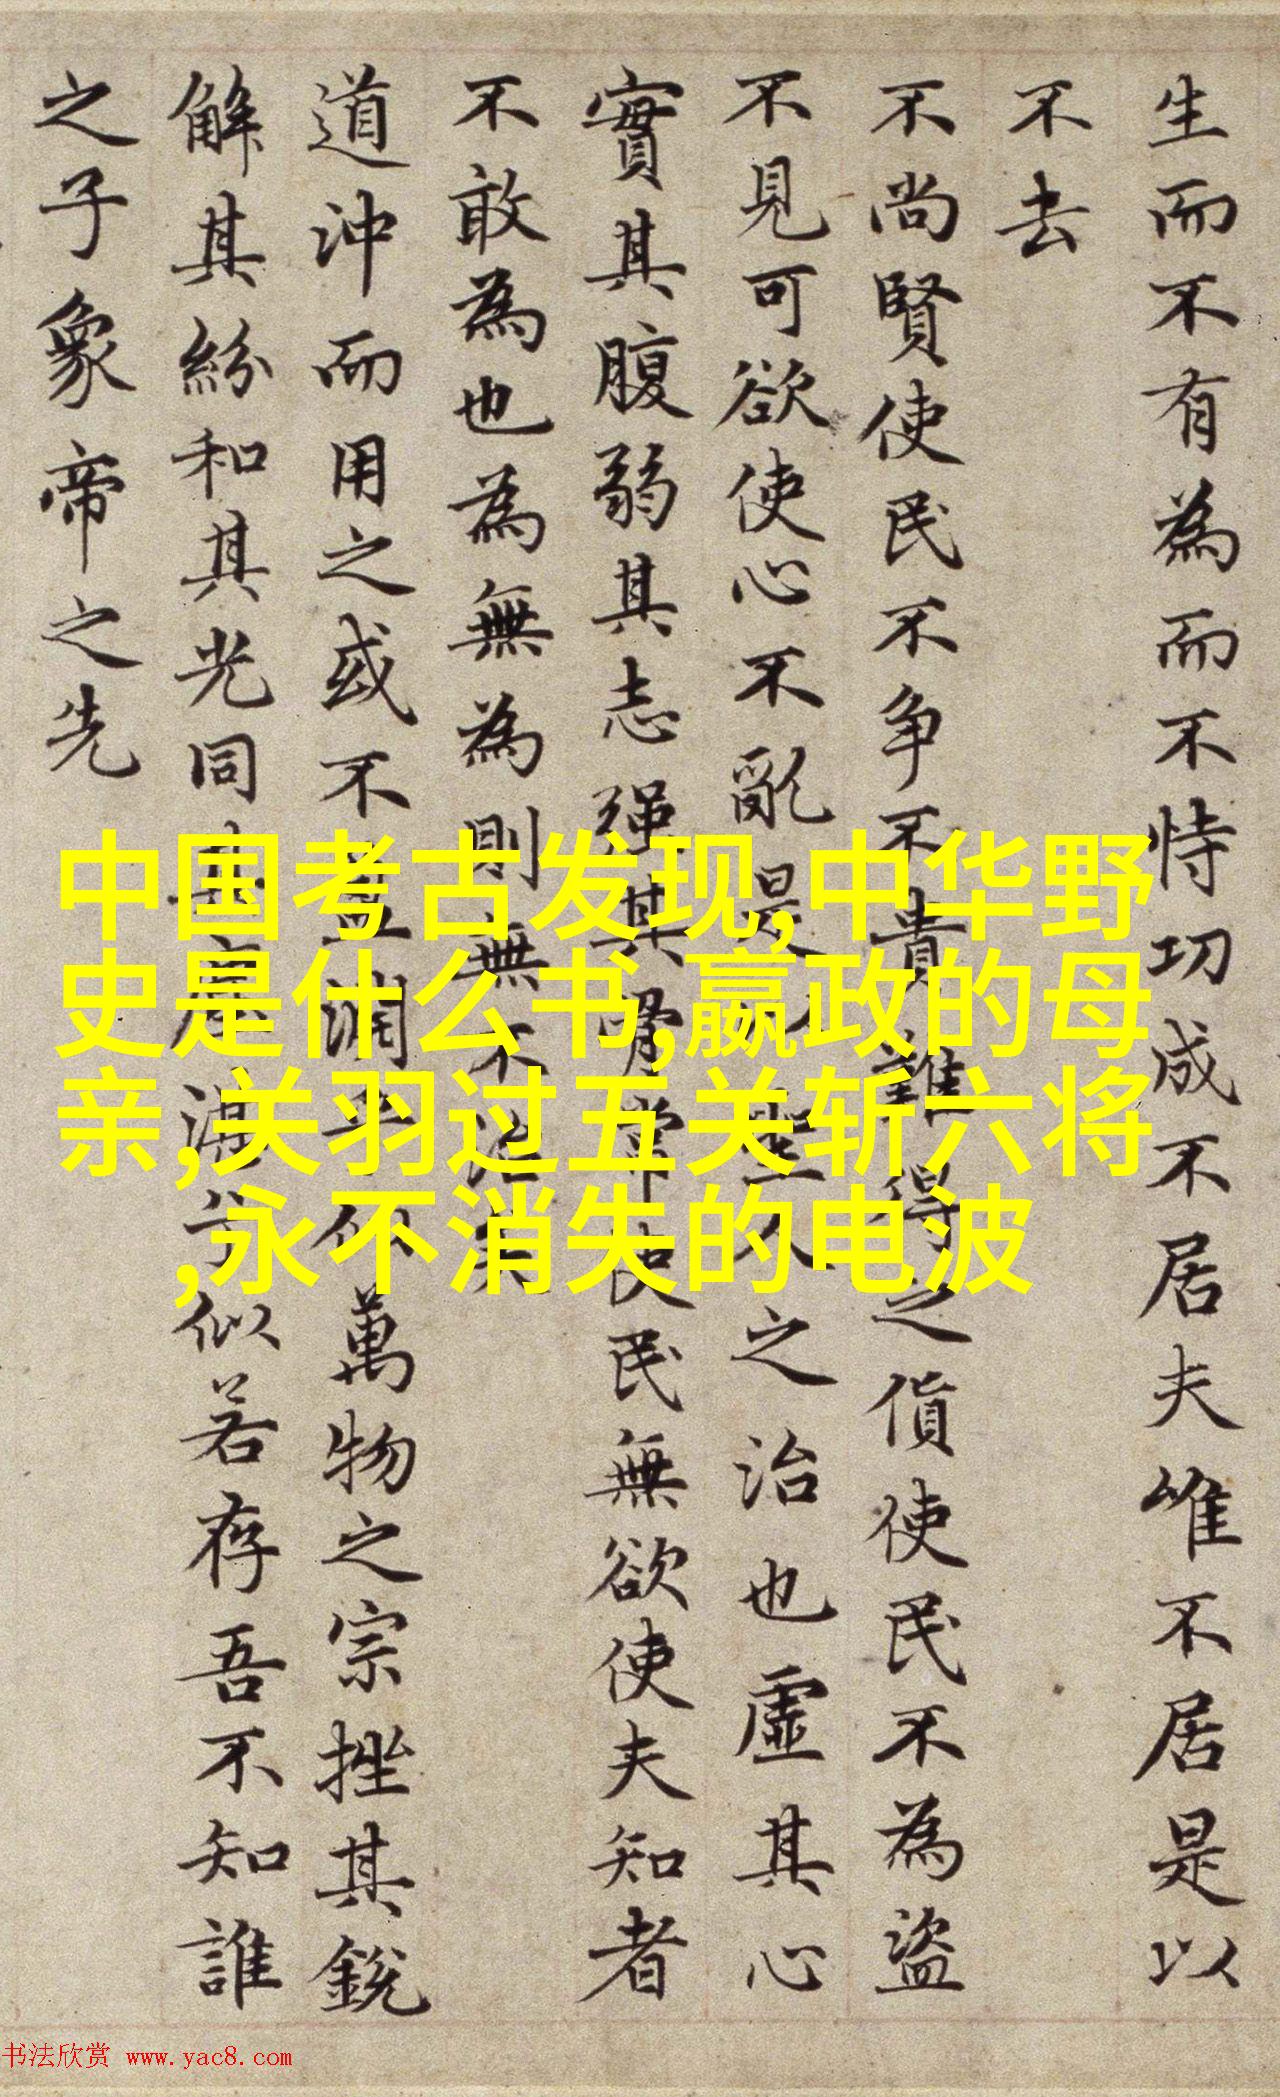 生而不有為而不恃功成不居夫唯不居是以
不去
不尚賢使民不争不貴難得之貨使民不為盜
不見可欲使心不亂是以聖人之治也虛其心
實其腹弱其志强其骨常使民無欲使夫知者
不敢為也為無為則無不治矣
道沖而用之或不盈淵乎似萬物之宗挫其銳
解其紛和其光同其塵湛兮似若存吾不知誰
之子象帝之先
中国考古发现,中华野
史是什么书,嬴政的母
亲,关羽过五关斩六将
,永不消失的电波
书法欣赏 www.yac8.com